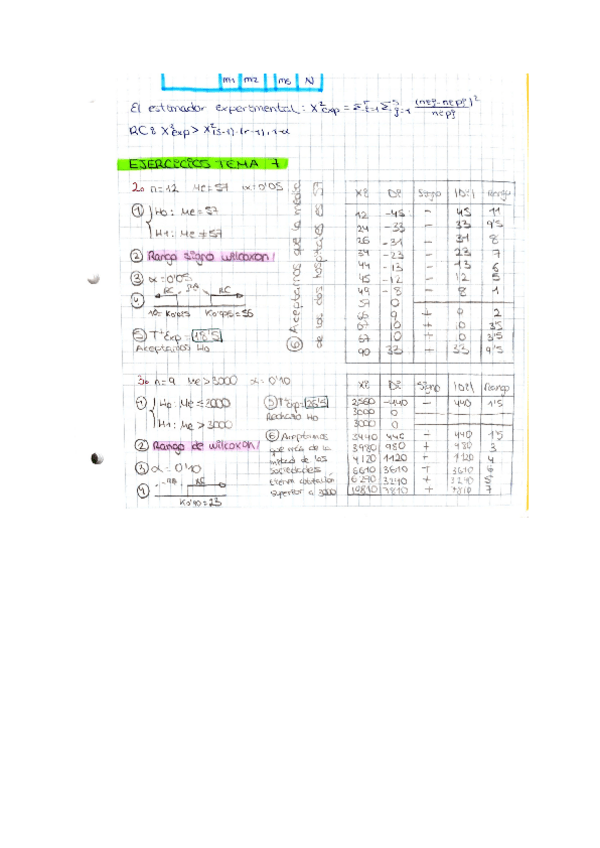 m1 m2 ms N
El estimador experimental: X²exp = Σ^r_i=1 Σ^s_j=1 (nej - nepj)² / nepj
RC: X²exp > X²(s-1)·(r-1), 1-α
EJERCICIOS TEMA 7
2. n=12 Me=57 α=0'05
① H0: Me = 57
H1: Me ≠ 57
② Rango signo Wilcoxon /
③ α=0'05
④ RC RA RC
K0'975=56
⑤ T+exp = 18'5
Aceptamos H0
⑥ Aceptamos que la media
de los dos hospitales es 57
Xi Di Signo |Di| Rango
12 -45 - 45 11
24 -33 - 33 9'5
26 -31 - 31 8
34 -23 - 23 7
44 -13 - 13 6
45 -12 - 12 5
49 -8 - 8 1
57 0
66 9 + 9 2
67 10 + 10 3'5
67 10 + 10 3'5
90 33 - 33 9'5
3. n=9 Me>3000 α=0'10
① H0: Me ≤ 3000
H1: Me > 3000
② Rango de Wilcoxon /
③ α=0'10
④ RA RC
K0'90=23
⑤ T+exp = 26'5
Rechazo H0
⑥ Aceptamos
que más de la
mitad de las
sociedades
tienen cotización
superior a 3000
Xi Di Signo |Di| Rango
2560 -440 - 440 1'5
3000 0
3000 0
3440 440 440 1'5
3980 980 + 980 3
4120 1120 + 1120 4
6610 3610 + 3610 6
6240 3240 + 3240 5
10810 7810 + 7810 7